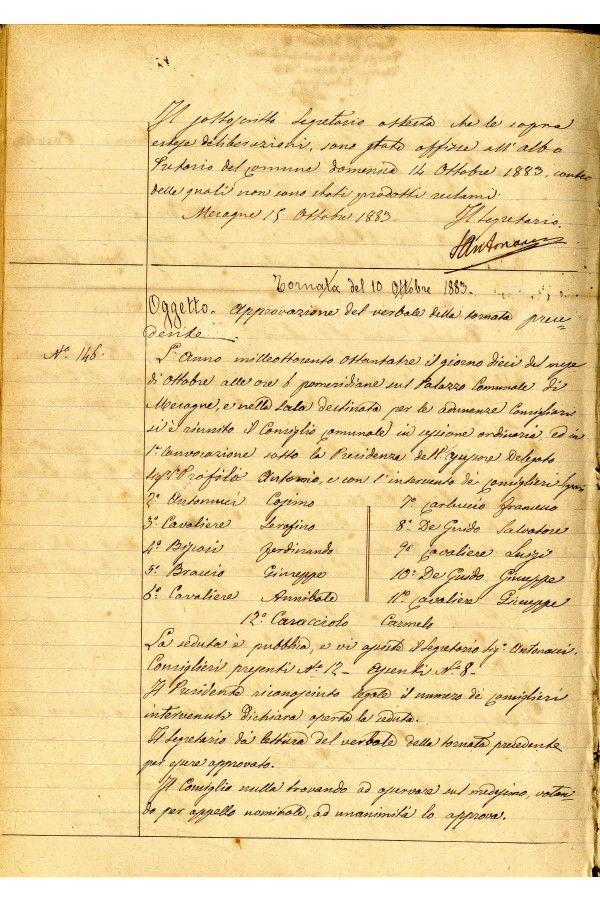 Il sottoscritto Segretario attesta che le sopra
estese deliberazioni, sono state affisse all'albo
Pretorio del Comune domenica 14 Ottobre 1883, contro
delle quali non sono stati prodotti reclami.
Mesagne 15 Ottobre 1883
Il Segretario
Antonucci
Tornata del 10 Ottobre 1883.
Oggetto. Approvazione del verbale della tornata prece-
dente
Nº 146.
L'Anno milleottocento ottantatre il giorno dieci del mese
di Ottobre alle ore 6 pomeridiane sul Palazzo Comunale di
Mesagne, e nella Sala destinata per le adunanze Consigliari
si è riunito il Consiglio Comunale in sessione ordinaria, ed in
1ª Convocazione sotto la Presidenza dell' Delegato
Sig. Profilo Antonio, e con l'intervento dei Consiglieri
2º Antonucci Cosimo
3º Cavaliere Serafino
4º Ferdinando
5º Braccio Giuseppe
6º Cavaliere Annibale
7º Carluccio Francesco
8º De Guido Salvatore
9º Cavaliere Luigi
10º De Guido Giuseppe
11º Cavaliere Giuseppe
12º Caracciolo Carmelo
La seduta è pubblica, e vi assiste il Segretario Sig. Antonucci.
Consiglieri presenti Nº 12 - Assenti Nº 8 -
Il Presidente riconosciuto legale il numero dei Consiglieri
intervenuti dichiara aperta la seduta.
Il Segretario dà lettura del verbale della tornata precedente
per essere approvato.
Il Consiglio nulla trovando ad osservare sul medesimo, votan-
do per appello nominale, ad unanimità lo approva.